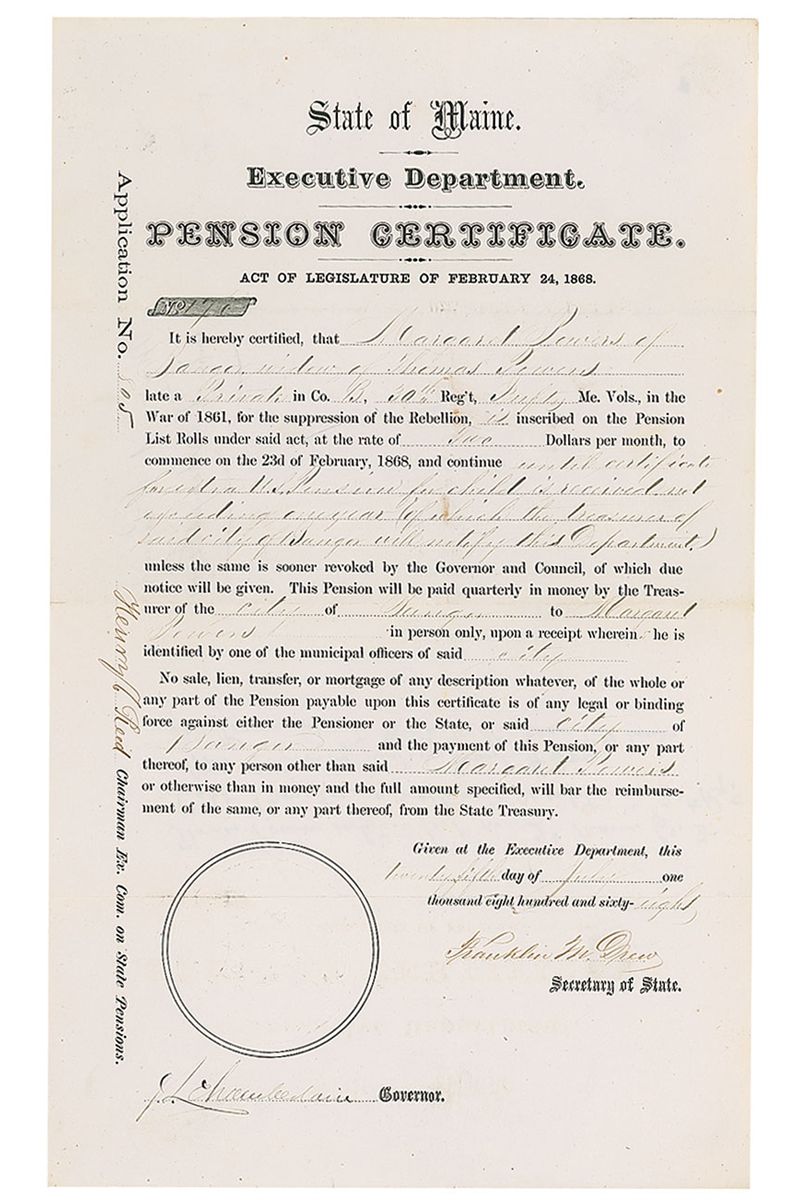 State of Maine.
Executive Department.
PENSION CERTIFICATE.
ACT OF LEGISLATURE OF FEBRUARY 24, 1868.
No.
It is hereby certified, that Margaret Powers of
Bangor widow of Thomas Powers
late a Private in Co. B, 30th Reg't, Me. Vols., in the
War of 1861, for the suppression of the Rebellion, is inscribed on the Pension
List Rolls under said act, at the rate of Two Dollars per month, to
commence on the 23d of February, 1868, and continue until certificate
for extra U.S. Pension for child is received not
exceeding one year (of which the treasurer of
said city of Bangor will notify this Department.)
unless the same is sooner revoked by the Governor and Council, of which due
notice will be given. This Pension will be paid quarterly in money by the Treas-
urer of the city of Bangor to Margaret
Powers in person only, upon a receipt wherein he is
identified by one of the municipal officers of said city
No sale, lien, transfer, or mortgage of any description whatever, of the whole or
any part of the Pension payable upon this certificate is of any legal or binding
force against either the Pensioner or the State, or said city of
Bangor and the payment of this Pension, or any part
thereof, to any person other than said Margaret Powers
or otherwise than in money and the full amount specified, will bar the reimburse-
ment of the same, or any part thereof, from the State Treasury.
Given at the Executive Department, this
twenty fifth day of July one
thousand eight hundred and sixty-eight
Franklin M. Drew
Secretary of State.
J L Chamberlain Governor.
Application No. 805
Henry Reed Chairman Ex. Com. on State Pensions.